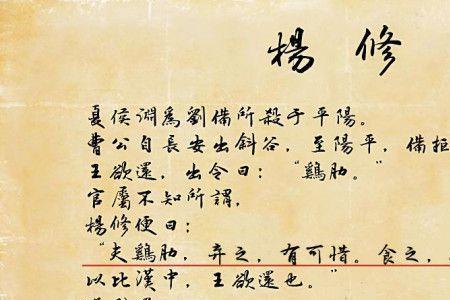 楊修
夏侯淵為劉備所殺于平陽。
曹公自長安出斜谷，至陽平，備拒
王欲還，出令曰：“鷄肋。”
官屬不知所謂，
楊修便曰：
“夫鷄肋，弃之，有可惜。食之，
以比漢中，王欲還也。”